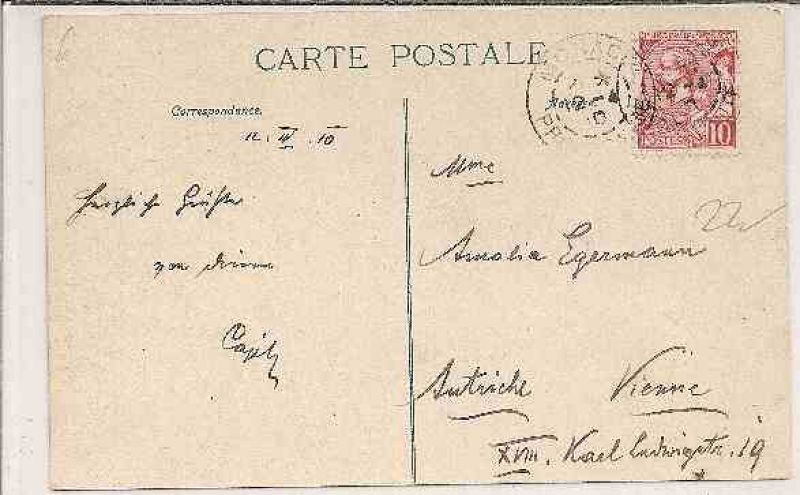 CARTE POSTALE
Correspondance.
12. IV . 10
Herzliche Grüße
von
Mme
Amalia Egermann
Autriche Vienne
XVIII. Karl Ludwigstr. 19
10
POSTES